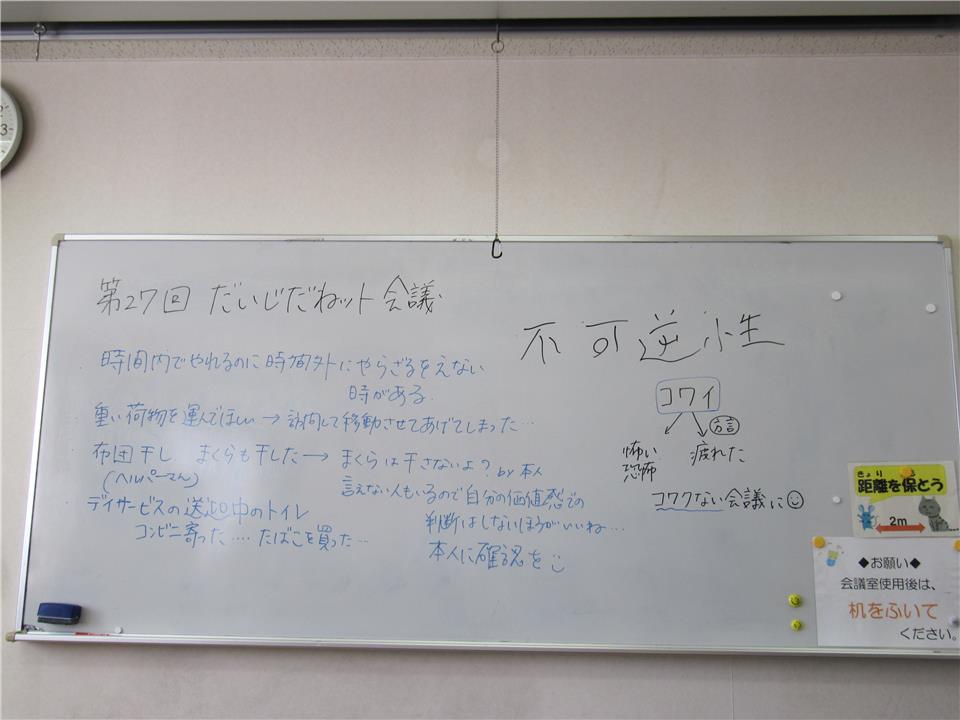 第27回 だいじだねット会議
・時間内でやれるのに時間外にやらざるをえない
時がある
・重い荷物を運んでほしい → 訪問して移動させてあげてしまった…
・布団干し まくらも干した → まくらは干さないよ? by本人
(ヘルパーさん)
言えない人もいるので自分の価値感での
判断はしないほうがいいね…
本人に確認を
・デイサービスの送迎中のトイレ
コンビニ寄った…. たばこを買った…
不可逆性
コワイ
方言
怖い
恐怖
疲れた
コワクない会議に
きょり
距離を保とう
2m
◆お願い◆
会議室使用後は、
机をふいて
ください。
3